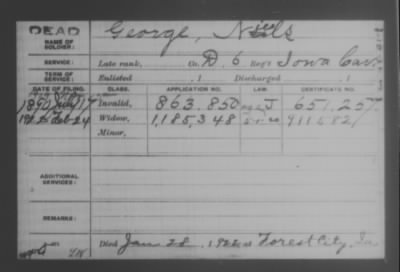 DEAD
NAME OF SOLDIER: George, Nels
SERVICE: Late rank, Co. D, 6 Reg't Iowa Cav.
TERM OF SERVICE: Enlisted , 1 Discharged , 1
DATE OF FILING. CLASS. APPLICATION NO. LAW. CERTIFICATE NO.
1890 July 17 Invalid, 863.850 J 651,257
1922 Feb 24 Widow, 1,185,348 911582
Minor,
ADDITIONAL SERVICES:
REMARKS:
Died Jan 28, 1922 at Forest City, Ia